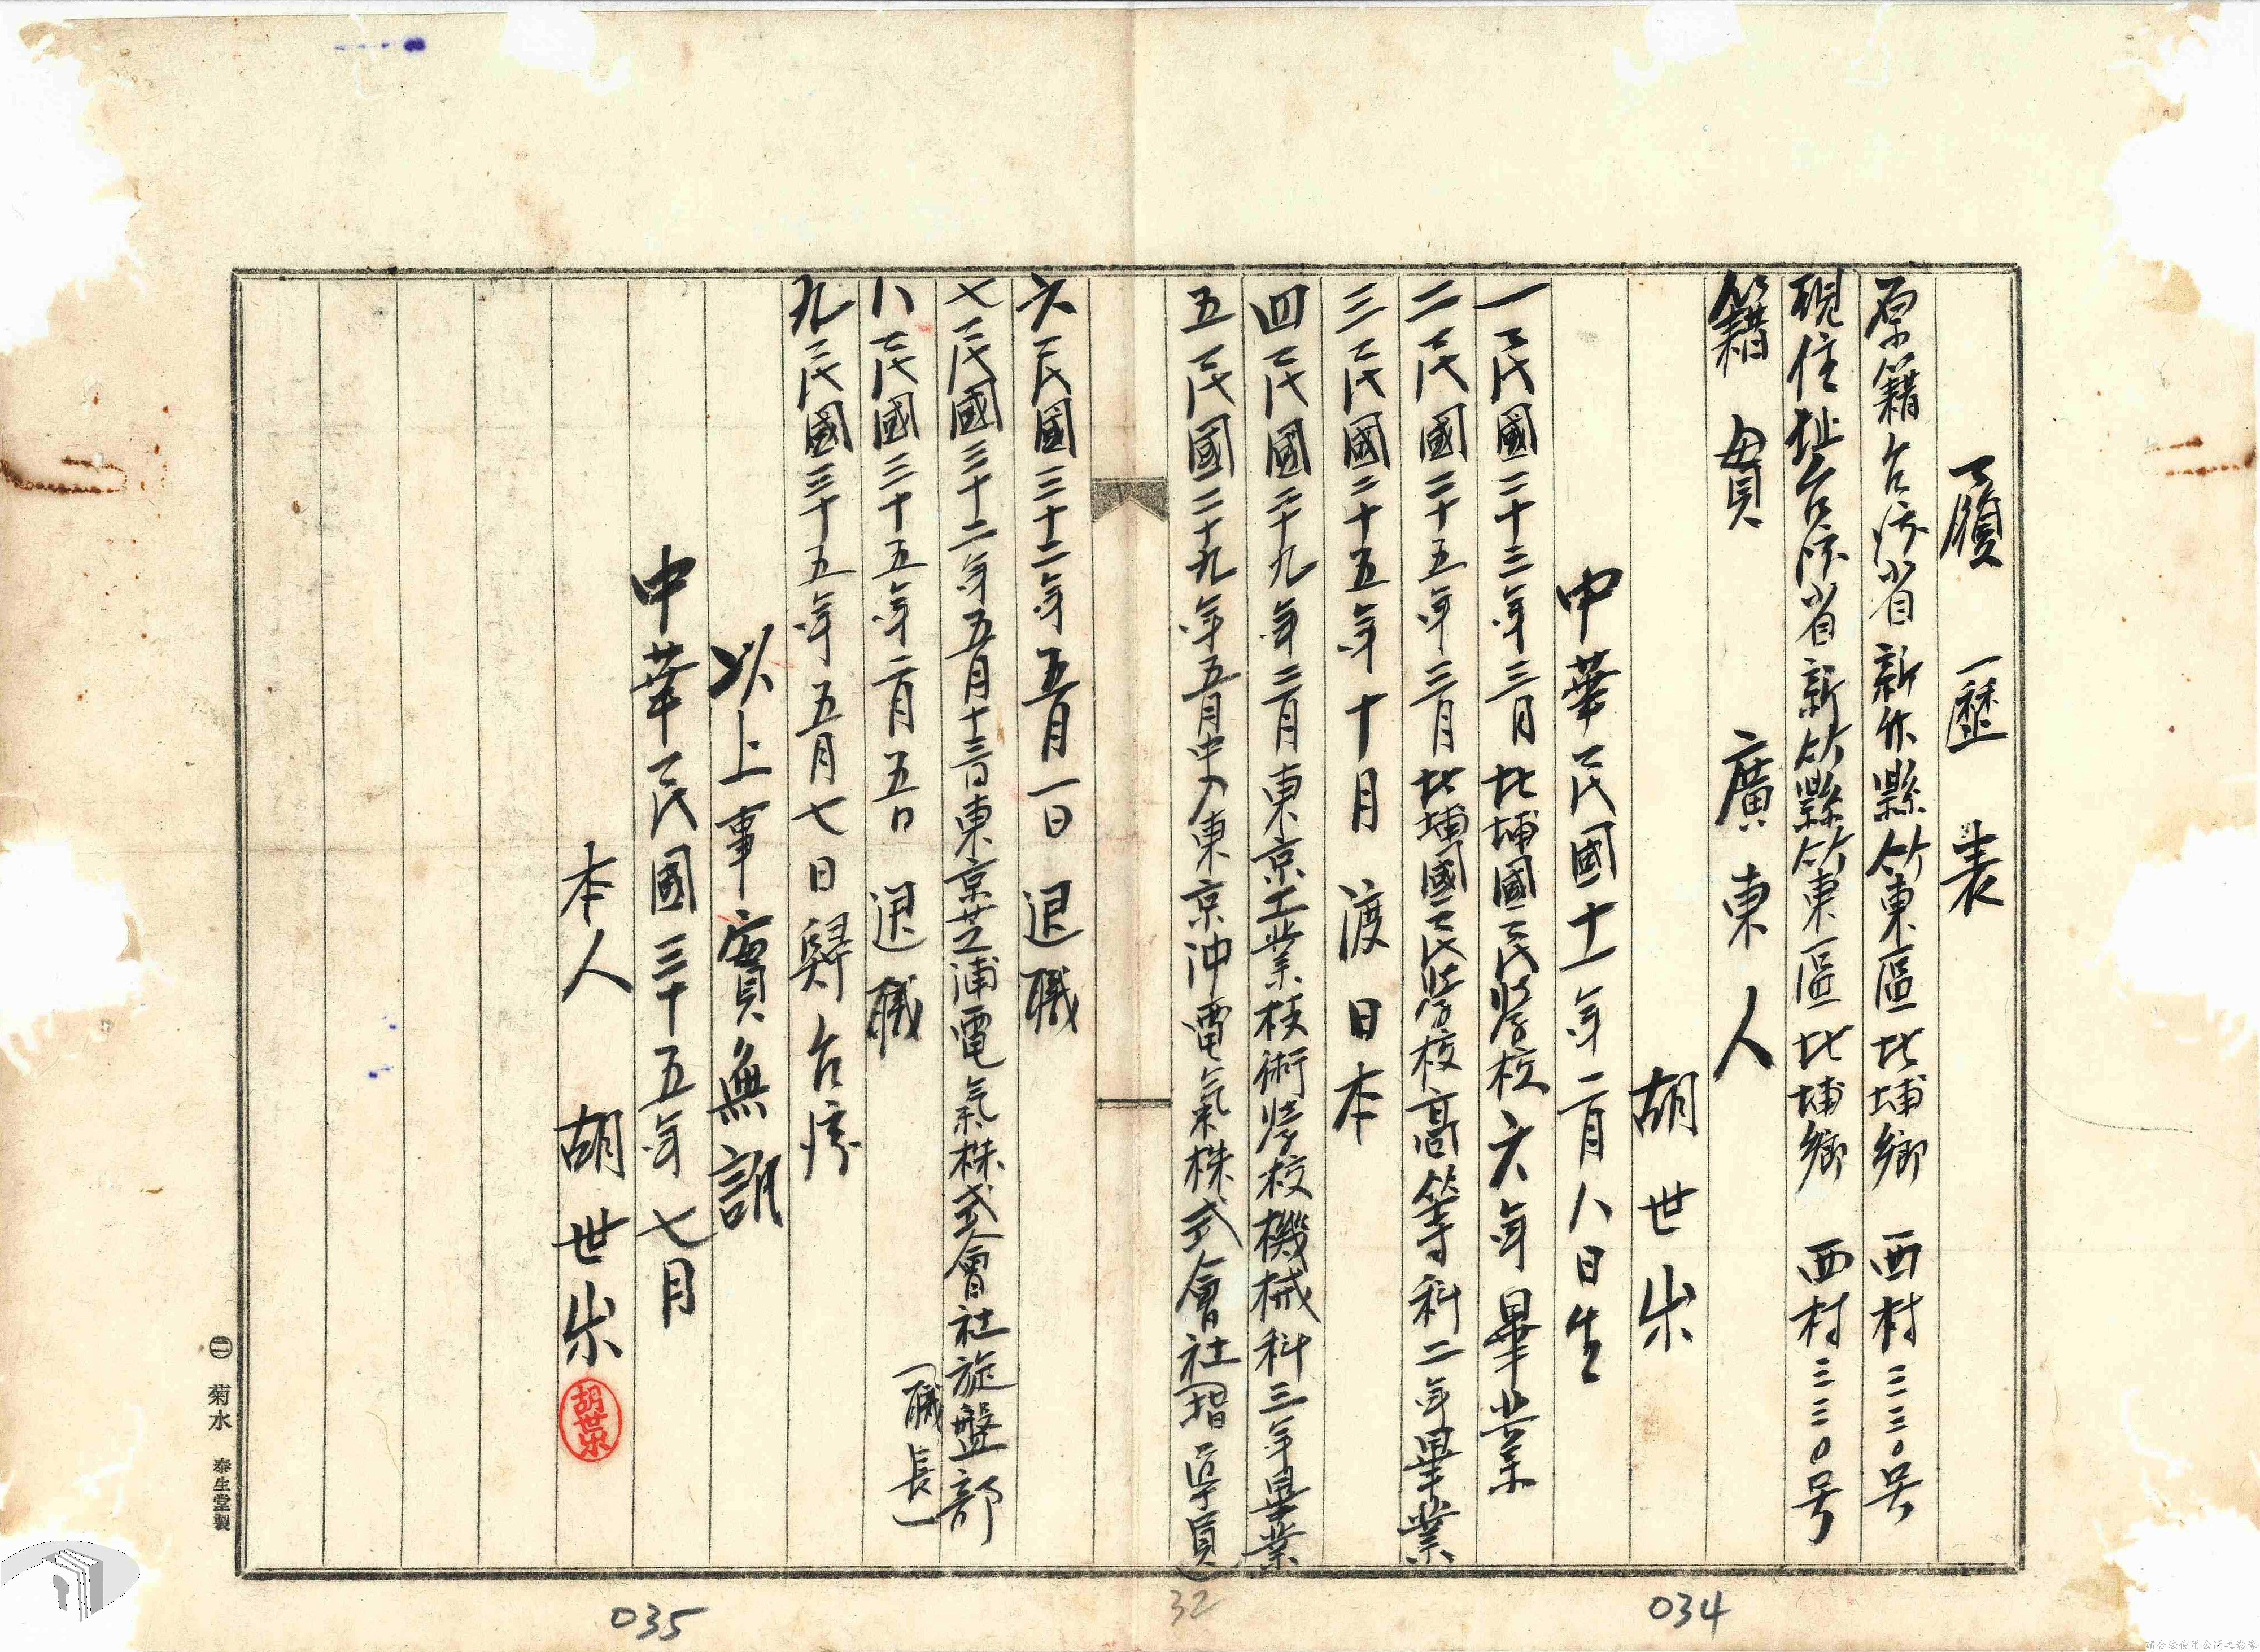 履歴表
原籍台湾省新竹縣竹東區北埔鄉 西村三三〇号
現住址台湾省新竹縣竹東區北埔鄉 西村三三〇号
籍貫 廣東人
胡世乐
中華民國十一年二月八日生
一民國二十三年三月北埔國民学校六年畢業
二民國二十五年三月北埔國民学校高等科二年畢業
三民國二十五年十月渡日本
四民國二十九年三月東京工業技術学校機械科三年畢業
五民國二十九年五月中入東京沖電氣株式會社(指導員)
六民國三十二年五月一日 退職
七民國三十二年五月十三日東京芝浦電氣株式會社旋盤部
(職長)
八民國三十五年二月五日 退職
九民國三十五年五月七日歸台湾
以上事實無訛
中華民國三十五年七月
本人 胡世乐
胡世乐
㊁ 菊水 泰生堂製
034
32
035
請合法使用公開之影像